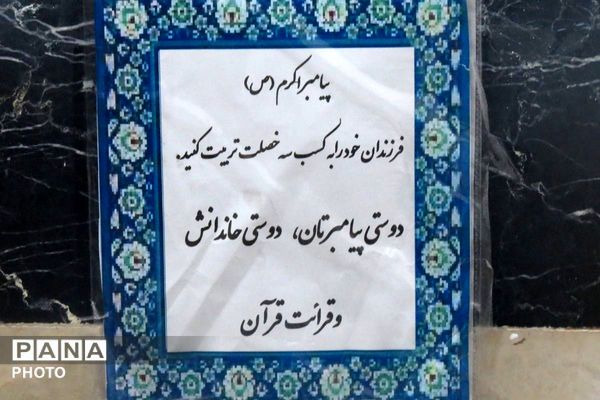 پیامبر اکرم (ص)
فرزندان خود را به کسب سه خصلت تربیت کنید.
دوستی پیامبرتان، دوستی خاندانش
و قرائت قرآن
PANA
PHOTO